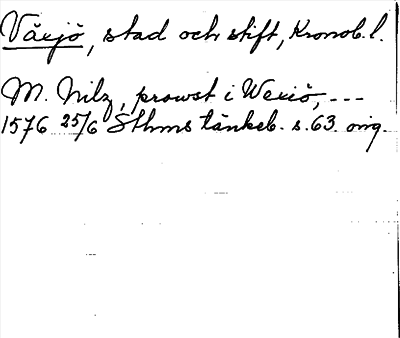 Växjö, stad och stift, Kronob. l.
M. Nilz, prowst i Wexiö, ---
1576 25/6 Sthms tänkeb. s. 63. orig.